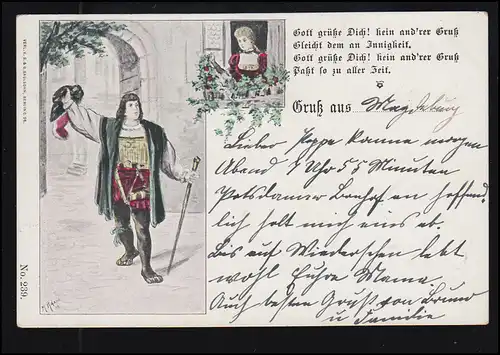 Gott grüße Dich! kein and'rer Gruß
Gleicht dem an Innigkeit.
Gott grüße Dich! kein and'rer Gruß
Paßt so zu aller Zeit.
Gruß aus Magdeburg
Lieber Poppe komme morgen
Abend 7 Uhr 55 Minuten
Potsdamer Banhof an hoffend
lich holt mich eins ab.
Bis auf Wiedersehen lebt
wohl Euhre Mama.
Auch besten Gruß von Bruno
u Familie
No. 239.